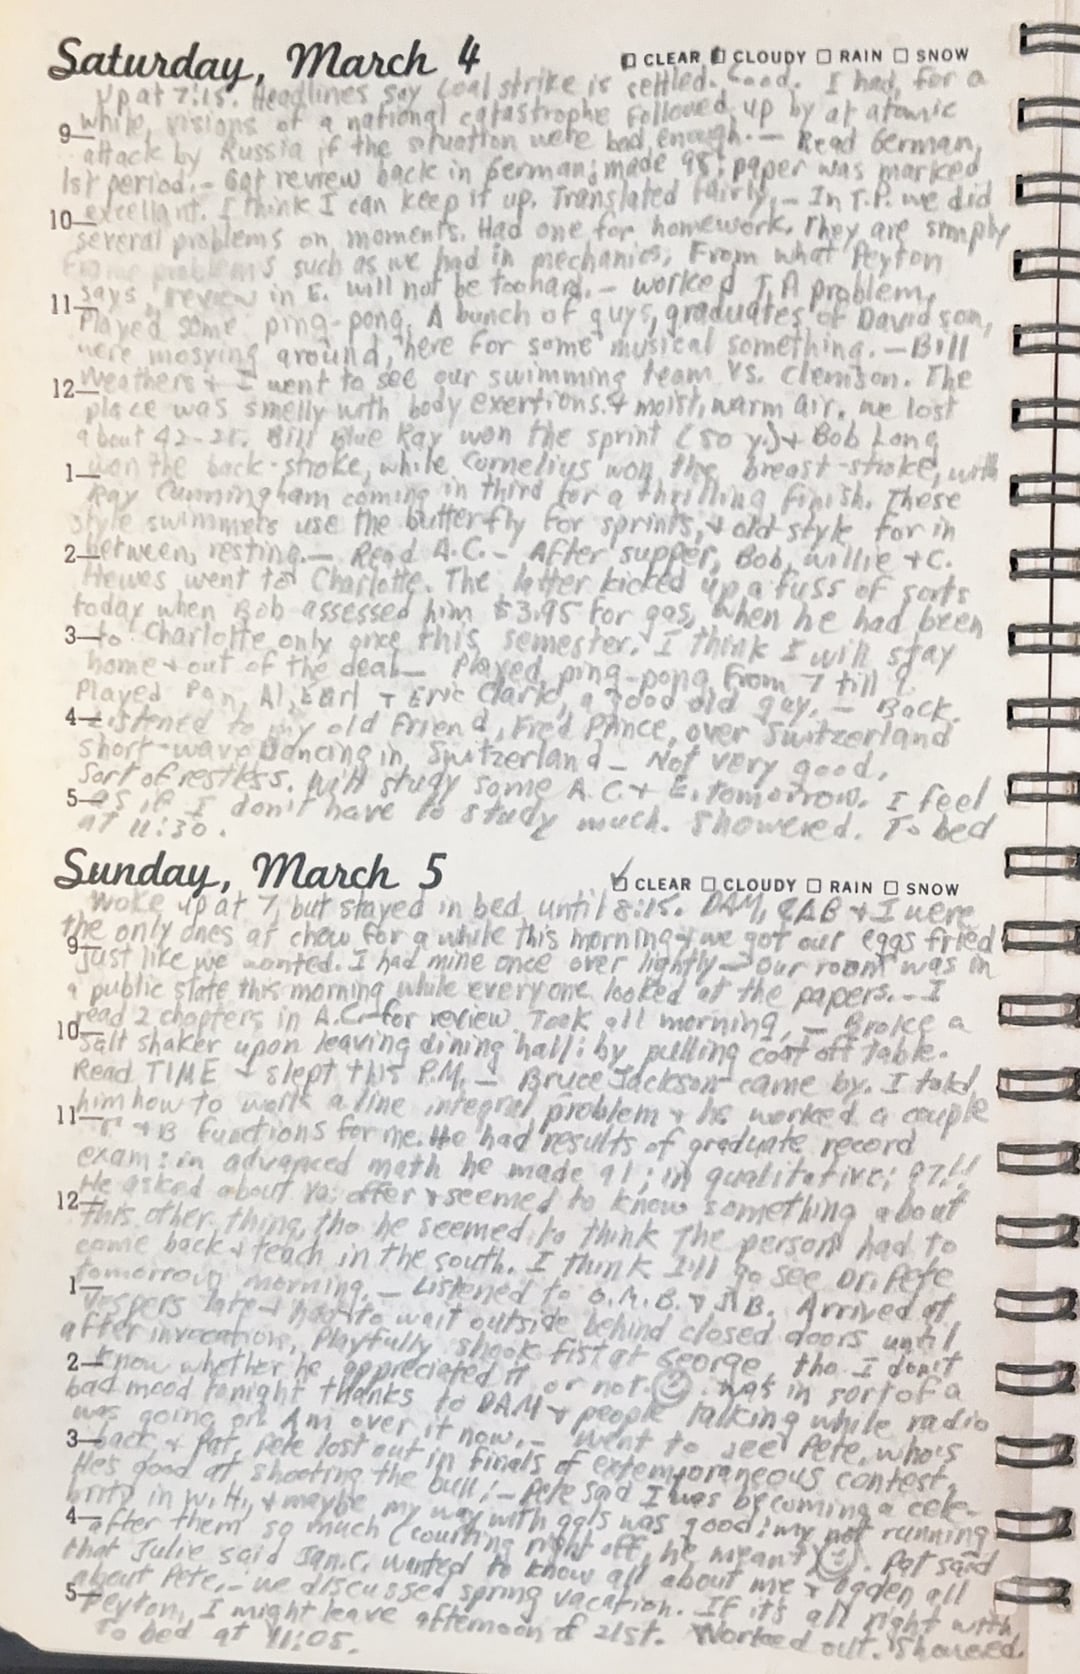 Saturday, March 4 CLEAR CLOUDY RAIN SNOW
Up at 7:15. Headlines say coal strike is settled. Good. I had, for a
while, visions of a national catastrophe followed up by at atomic
9 attack by Russia if the situation were bad enough. — Read German,
1st period. - Got review back in German; made 95; paper was marked
10 excellant. I think I can keep it up. Translated fairly. - In T.P. we did
several problems on moments. Had one for homework. They are simply
problems such as we had in mechanics. From what Peyton
11 says, review in E. will not be too hard. - worked T.A problem.
Played some ping-pong. A bunch of guys, graduates of Davidson,
were mosying around, here for some musical something. - Bill
12 Weathers + I went to see our swimming team vs. Clemson. The
place was smelly with body exertions + moist, warm air. We lost
about 42-25. Bill Blue Ray won the sprint (50 y.) + Bob Long
1 won the back-stroke, while Cornelius won the breast-stroke, with
Ray Cunningham coming in third for a thrilling finish. These
style swimmers use the butterfly for sprints, + old style for in
2 between, resting. — Read A.C. - After supper, Bob, Willie + C.
Hewes went to Charlotte. The latter kicked up a fuss of sorts
today when Bob assessed him $3.95 for gas, when he had been
3 to Charlotte only once this semester. I think I will stay
home + out of the deal — Played ping-pong from 7 till
Played Pan, Al, Earl + Eric Clark, a good old guy. - Back.
4 Listened to my old friend, Fred Prince, over Switzerland
short-wave Dancing in Switzerland - Not very good.
Sort of restless. Will study some A.C. + E. tomorrow. I feel
5 as if I don't have to study much. Showered. To bed
at 11:30.
Sunday, March 5 CLEAR CLOUDY RAIN SNOW
Woke up at 7, but stayed in bed until 8:15. DAM, CAB + I were
the only ones at chow for a while this morning + we got our eggs fried
9 just like we wanted. I had mine once over lightly - Our room was in
a public state this morning while everyone looked at the papers. - I
read 2 chapters in A.C. for review. Took all morning. - Broke a
10 salt shaker upon leaving dining hall: by pulling coat off table.
Read TIME + slept this P.M. - Bruce Jackson came by. I told
him how to work a line integral problem + he worked a couple
11 + B functions for me. He had results of graduate record
exam: in advanced math he made 91; in qualitative; 97!!
He asked about offer + seemed to know something about
12 this other thing, tho he seemed to think the person had to
come back + teach in the south. I think I'll go see Dr. Pete
tomorrow morning. - Listened to G.M.B. + J.B. Arrived at
1 Vespers late + had to wait outside behind closed doors until
after invocation. Playfully shook fist at George, tho I don't
2 know whether he appreciated it or not. ☺. Was in sort of a
bad mood tonight thanks to DAM + people talking while radio
was going on. Am over it now. - Went to see Pete, who's
3 back, + Pat. Pete lost out in finals of extemporaneous contest.
He's good at shooting the bull! - Pete said I was becoming a cele-
brity in W.H., + maybe my way with gals was good: my not running
4 after them so much (courting right off, he meant ☺. Pat said
that Julie said Jan.C. wanted to know all about me + Ogden all
about Pete. - We discussed spring vacation. If it's all right with
5 Peyton, I might leave afternoon of 21st. Worked out. Showered.
To bed at 11:05.